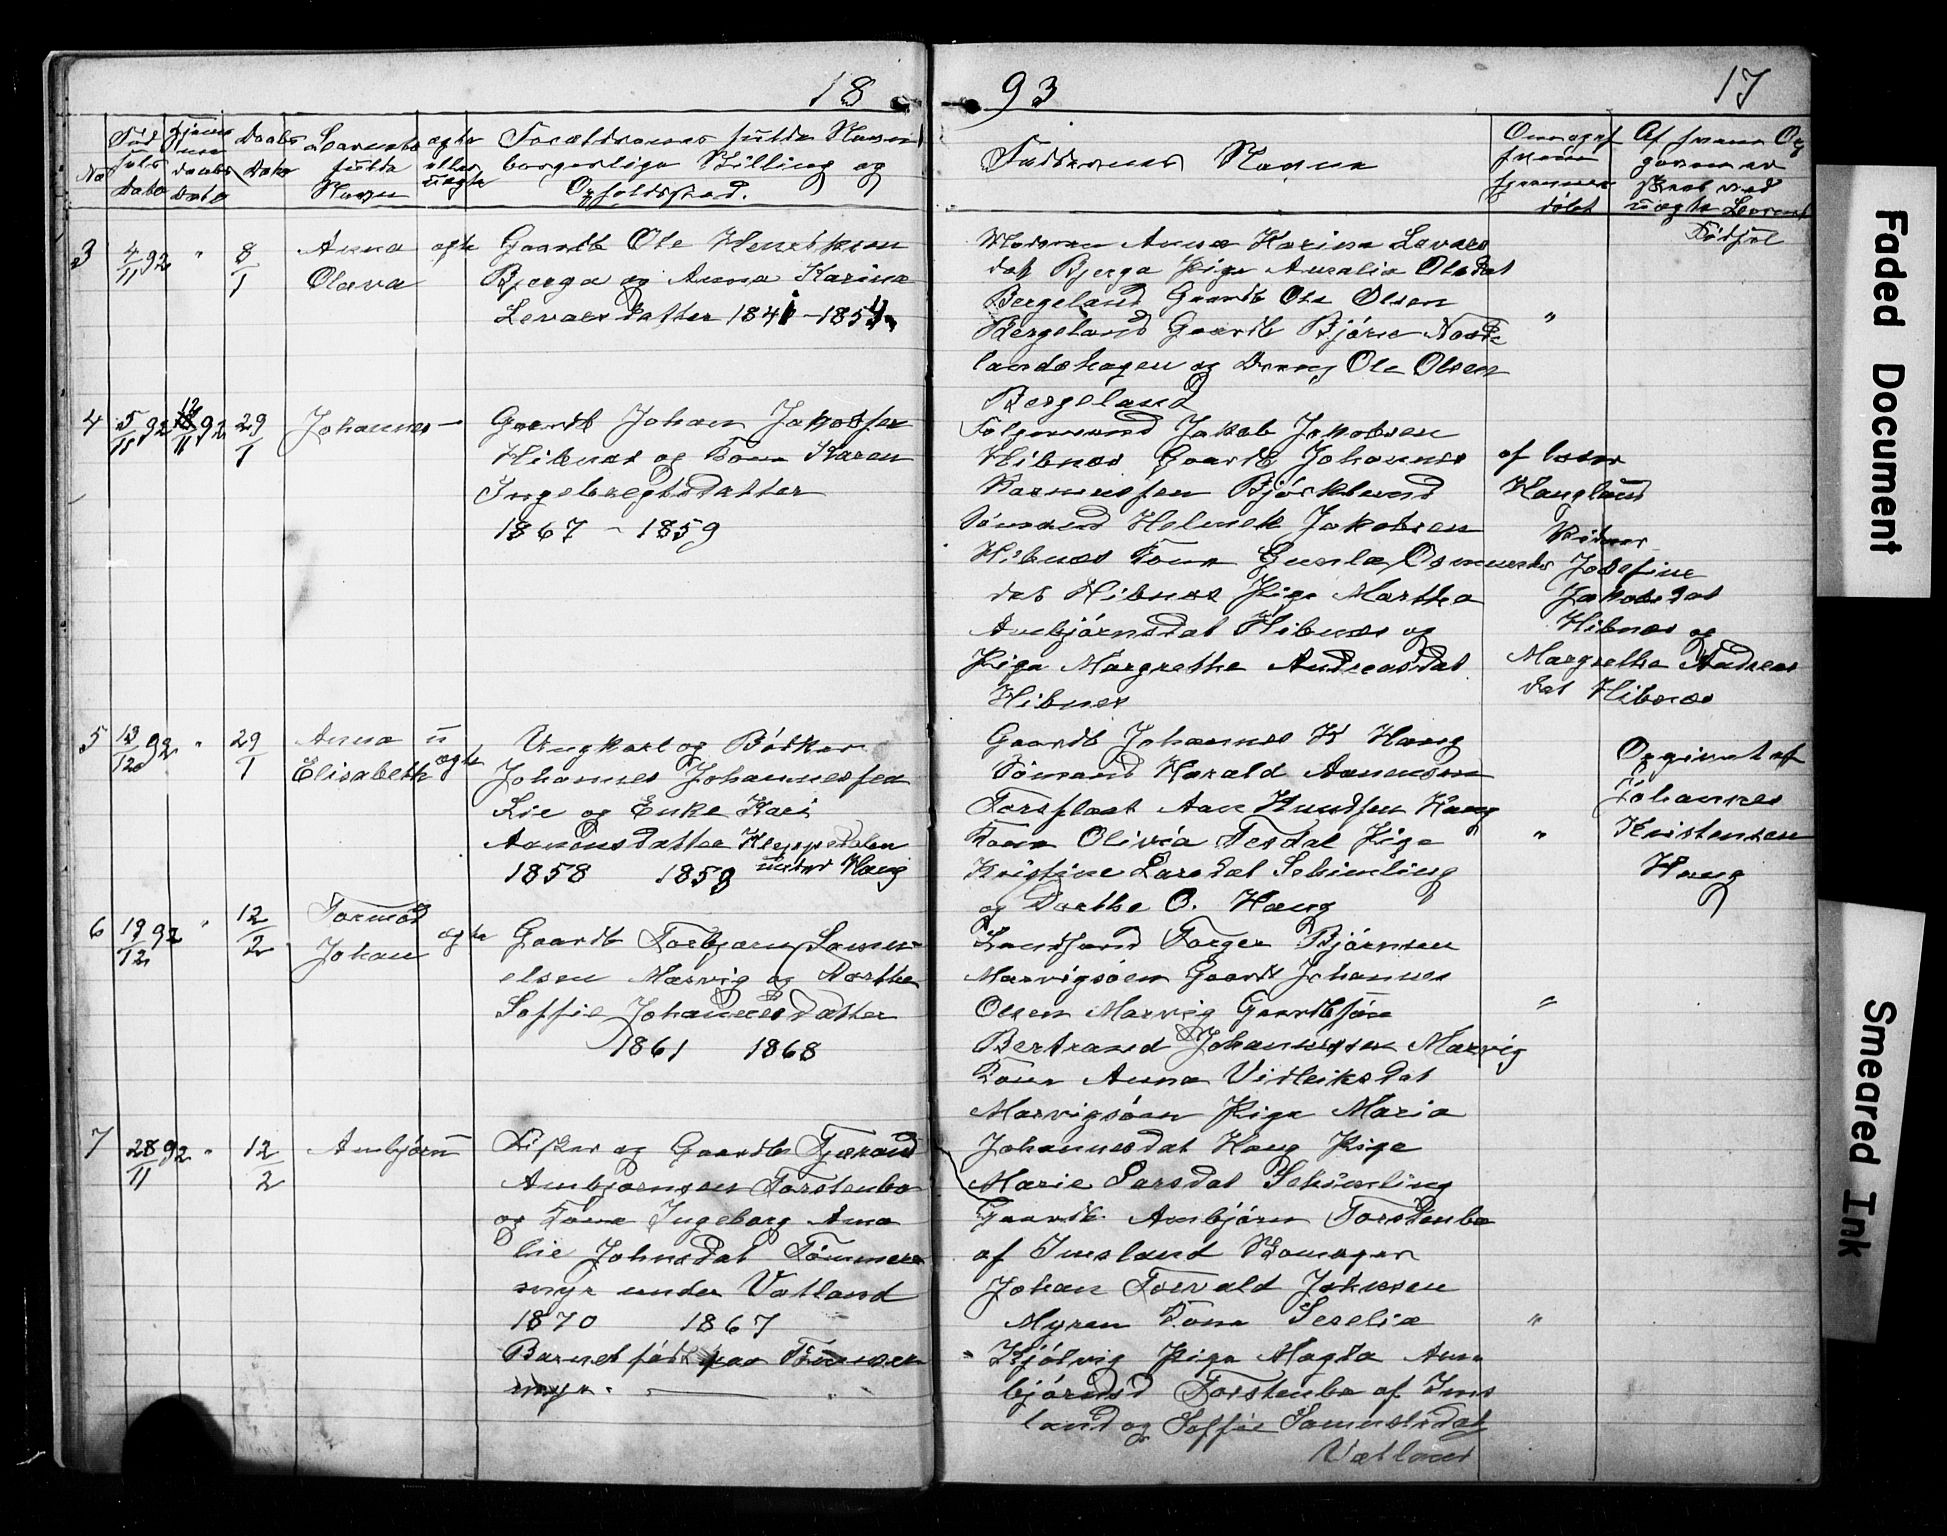 18 93 17
No
Fødsels Dato
Hjemmedaabs Dato
Daabs Dato
Barnets fulde Navn
ægte eller uægte
Forældrenes fulde Navn
borgerlige Stilling og
Opholdssted.
Faddernes Navne
Af hvem Opgaven er
uægte Barns
Fødsel
3 4/11 92 " 8/1 Anna ægte Gaardb Ole Henriksen
Olava Bjerga og Anna Karina
Levaersdatter 1841 - 1854
Moderen Anna Karina Levaers
dat Bjerga Pige Auralia Olsdat
Bergeland Gaardb Ole Olsen
Bergeland Gaardb Bjørn Nord
landshagen og Dreng Ole Olsen
Bergeland
"
4 5/11 92 12/11 92 29/1 Johannes — Gaardb Johan Jakobsen
Hibnes og Kone Karen
Ingebregtsdatter
1867 - 1859
Følgemand Jakob Jakobsen
Hibnes Gaardb Johannes
Rasmussen Bjørklund
Sømand Helmek Jakobsen
Hibnes Kone Gunla Osmunds
dat Hibnes Pige Martha
Ambjørnsdat Hibnes og
Pige Margrethe Andreasdat
Hibnes
af Lærer
Haugland
Vidner
Josefine
Jakobsdat
Hibnes og
Margretha Andreas
dat Hibnes
5 13/12 92 " 29/1 Anna u
Elisabeth ægte
Ungkarl og Bødker
Johannes Johannessen
Lie og Enke Kari
Aanensdatter Kleppedalen
1858 1859 under Haug
Gaardb Johannes K Haug
Sømand Harald Aanensen
Forsfløat Aan Knudsen Haug
Kone Olivia Tesdal Pige
Kristine Larsdat Schimling
og Dorthe O. Haug
"
Opgivet af
Johannes
Kristensen
Haug
6 19/12 92 " 12/2 Tormod
Johan ægte
Gaardb Torbjørn Samu-
elsen Marvig og Dorthe
Soffie Johannesdatter
1861 1868
Landhand Torger Bjørnsen
Marvigsøen Gaardb Johannes
Olsen Marvig Gaardbsøn
Bertrand Johannessen Marvig
Kone Anna Vidleiksdat
Marvigsøen Pige Maria
Johannesdat Haug Pige
"
7 28/11 92 " 12/2 Ambjørn "
Fisker og Gaardb Tjerand
Ambjørnsen Torstenbo
og Kone Ingeborg Ama
lie Johnsdat Tømmer
myr under Vatland
1870 1867
Barnet født paa Tømmer
myr.
Marie Larsdat Schimling
Gaardb Ambjørn Torstenbo
af Imsland Skomager
Johan Torvald Johnsen
Myren Kone Serelia
Kjølvig Pige Magta Am
bjørnsd Torstenbo af Ims
land og Soffie Samuelsdat
Vatland
"
Faded Document
Smeared Ink